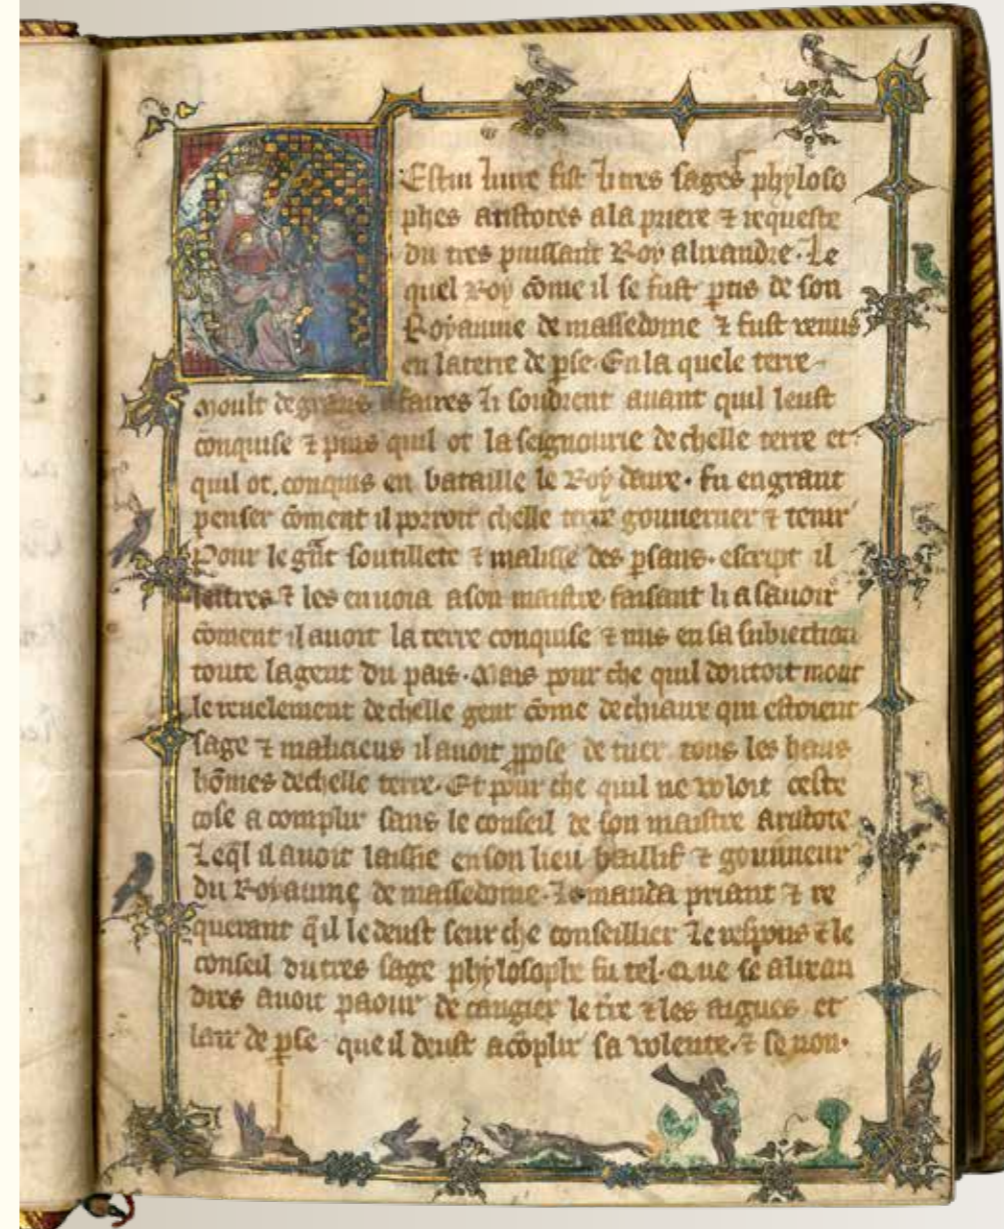 Cestui liure fist li tres sages phyloso
phes aristotes a la priere ⁊ requeste
du tres puissant Roy alixandre. Le
quel Roy cōme il se fust ptis de son
Royaume de massedoine ⁊ fust venus
en la terre de pse. En la quele terre
Moult de grans afaires li soudrent auant quil leust
conquise ⁊ puis quil ot la seignourie de chelle terre et
quil ot conquis en bataille le Roy daire. fu en grant
penser cōment il porroit chelle terre gouuerner ⁊ tenir
Pour le gnt soutillete ⁊ malisse des psans. escript il
lettres ⁊ les enuoia a son maistre faisant li a sauoir
cōment il auoit la terre conquise ⁊ mis en sa subiection
toute la gent du pais. Mais pour che quil doutoit mout
le reuelement de chelle gent cōme de chiaux qui estoient
sage ⁊ malicieus il auoit ppose de tuer tous les haus
hōmes de chelle terre. Et pour che quil ne voloit ceste
cose a complir sans le conseil de son maistre Aristote
Leql il auoit laissie en son lieu baillif ⁊ gouuneur
du Royaume de massedoine. Le manda priant ⁊ re
querant q̄ il le deust seur che conseillier Le respons ⁊ le
conseil du tres sage phylosophe fu tel. Que se alixan
dres auoit paour de cangier le tre ⁊ les aigues et
lair de pse que il deust acōplir sa volente. ⁊ se non.